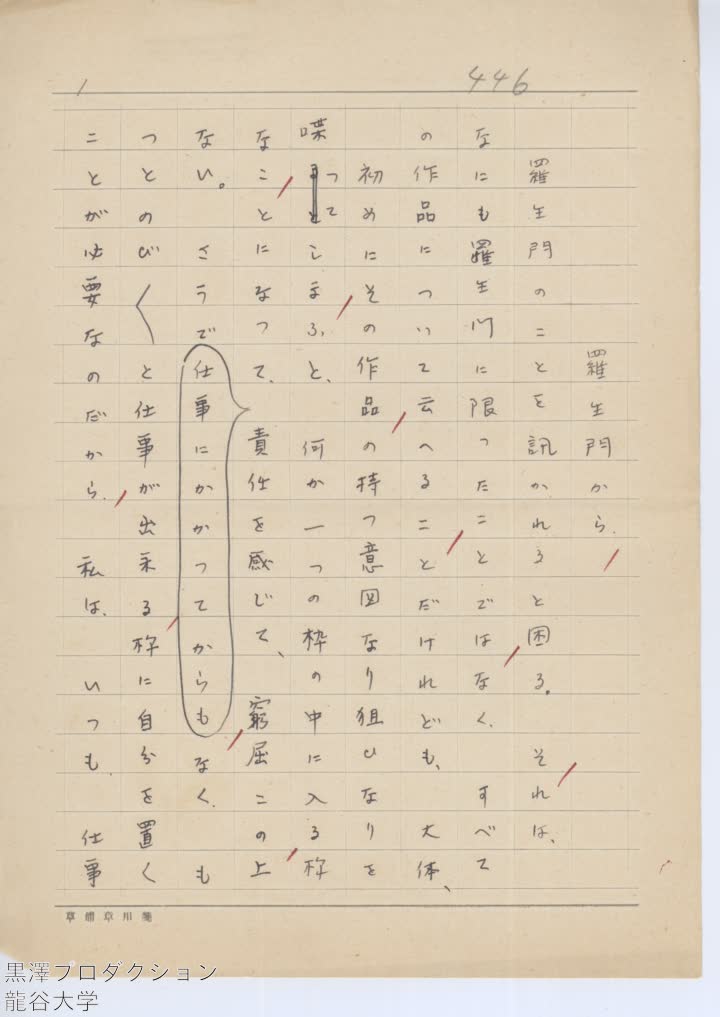 446
1
羅生門から、
羅生門のことを訊かれると困る。それは、
なにも羅生門に限ったことではなく、すべて
の作品について云へることだけれども、大体、
初めにその作品の持つ意図なり狙ひなりを
喋つてしまふ、と、何か一つの枠の中に入る枠
なことになつて、責任を感じて、窮屈この上
ない。さうで仕事にかかつてからもなく、も
つとのび〱と仕事が出来る枠に自分を置く
ことが必要なのだから、私は、いつも、仕事
黒澤プロダクション
龍谷大学